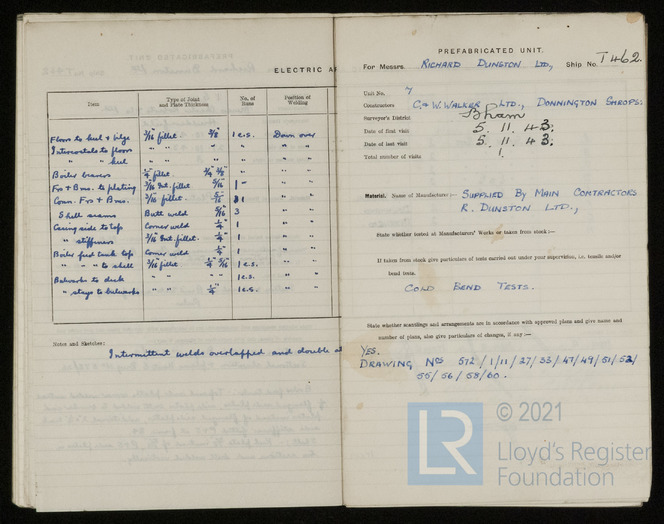 ELECTRIC A
Item
Type of Joint and Plate Thickness
No. of Runs
Position of Welding
Floors to keel & bilge 3/16 fillet 3/8" 1 c.s. Down over
Intercostals to floors " " " " " "
" " keel " " " " " "
Boiler bearers 1/4" fillet 3/4" 1/2" " "
Frs & Bms. to plating 3/16 Int. fillet 5/16 1 - " "
Conn. Frs & Bms. 3/16 fillet 5/16 1 " "
Shell seams Butt weld 5/16 3 " "
Casing side to top Corner weld 1/4" 1 " "
" stiffeners 3/16 Int. fillet. 1/4" 1 " "
Boiler feed tank top Corner weld 1/4" 1 " "
" " " to shell 3/16 fillet 1/4" 5/16 1 c.s. " "
Bulwarks to deck " " 1 c.s. " "
" stays to bulwarks " " 1/4" 1 c.s. " "
Notes and Sketches:
Intermittent welds overlapped and double at
PREFABRICATED UNIT.
For Messrs. RICHARD DUNSTON LTD., Ship No. T462.
Unit No. 7
Contractors C. & W. WALKER LTD., DONNINGTON SHROPS.
Surveyor's District Bham
Date of first visit 5. 11. 43.
Date of last visit 5. 11. 43.
Total number of visits 1.
Material. Name of Manufacturer:- SUPPLIED BY MAIN CONTRACTORS
R. DUNSTON LTD.,
State whether tested at Manufacturers' Works or taken from stock:-
If taken from stock give particulars of tests carried out under your supervision, i.e. tensile and/or
bend tests.
COLD BEND TESTS.
State whether scantlings and arrangements are in accordance with approved plans and give name and
number of plans, also give particulars of changes, if any:-
YES.
DRAWING Nos 572/1/11/27/33/47/49/51/52/
55/56/58/60.
© 2021
LR
Lloyd's Register
Foundation